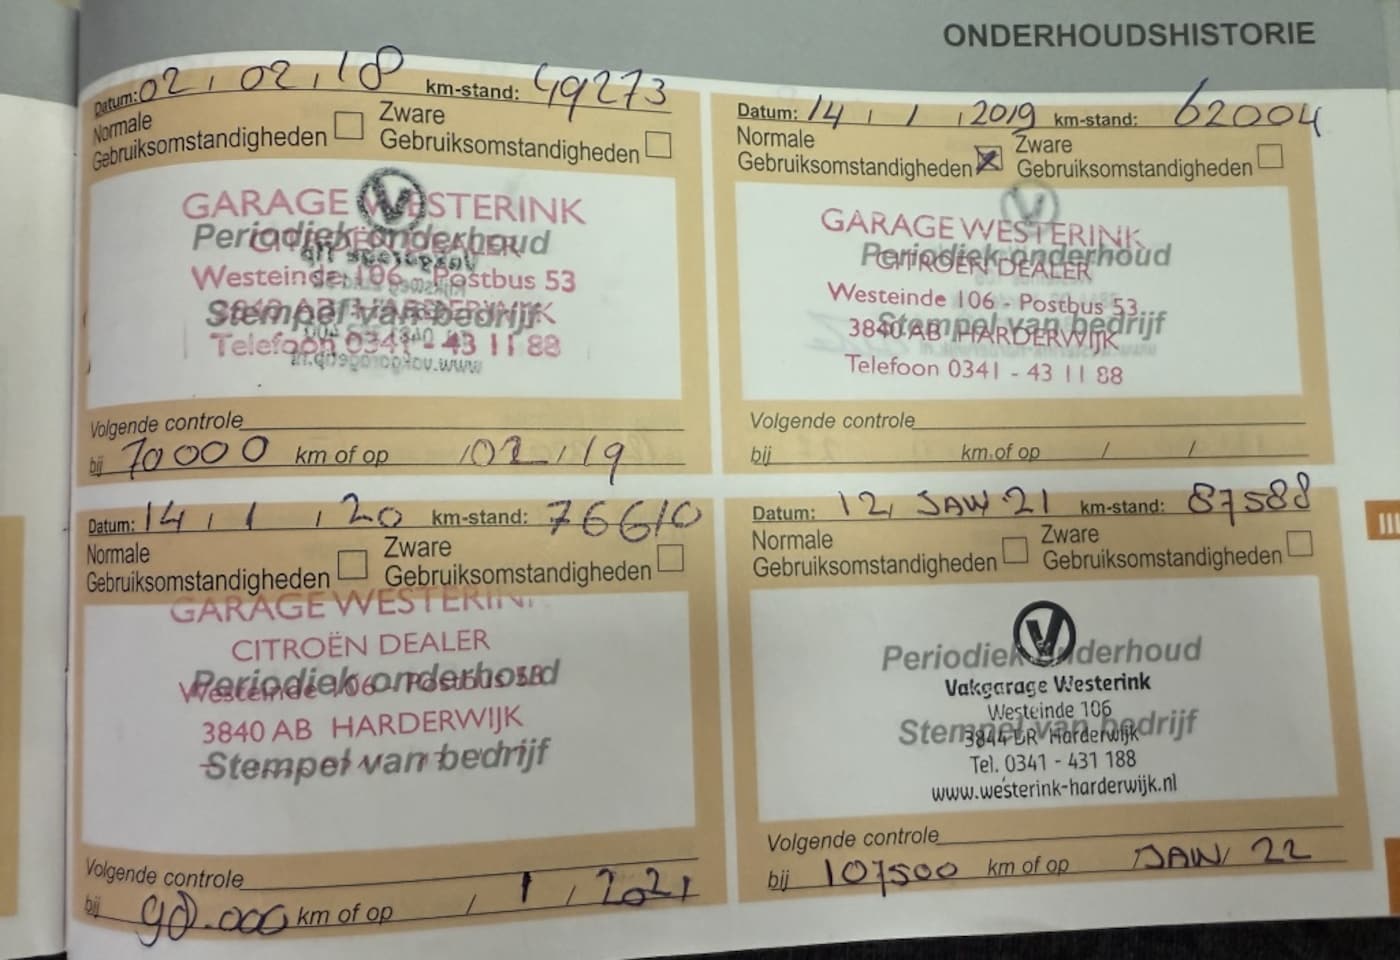 ONDERHOUDSHISTORIE
Datum: 02, 02, 18 km-stand: 49273
Normale Gebruiksomstandigheden
Zware Gebruiksomstandigheden
GARAGE WESTERINK
Periodiek onderhoud
CITROËN DEALER
Westeinde 106 - Postbus 53
3840 AB HARDERWIJK
Stempel van bedrijf
Telefoon 0341 - 43 11 88
Volgende controle
bij 70000 km of op /02/19
Datum: 14 / 1 / 2019 km-stand: 62004
Normale Gebruiksomstandigheden
Zware Gebruiksomstandigheden
GARAGE WESTERINK
Periodiek onderhoud
CITROËN DEALER
Westeinde 106 - Postbus 53
Stempel van bedrijf
3840 AB HARDERWIJK
Telefoon 0341 - 43 11 88
Volgende controle
bij km of op / /
Datum: 14 / 1 / 20 km-stand: 76610
Normale Gebruiksomstandigheden
Zware Gebruiksomstandigheden
GARAGE WESTERINK
CITROËN DEALER
Periodiek onderhoud
Westeinde 106 - Postbus 53
3840 AB HARDERWIJK
Stempel van bedrijf
Volgende controle
bij 90.000 km of op / 1 / 2021
Datum: 12, JAN 21 km-stand: 87588
Normale Gebruiksomstandigheden
Zware Gebruiksomstandigheden
Periodiek onderhoud
Vakgarage Westerink
Westeinde 106
Stempel van bedrijf
Harderwijk
Tel. 0341 - 431 188
www.westerink-harderwijk.nl
Volgende controle
bij 107500 km of op JAN/ 22
III